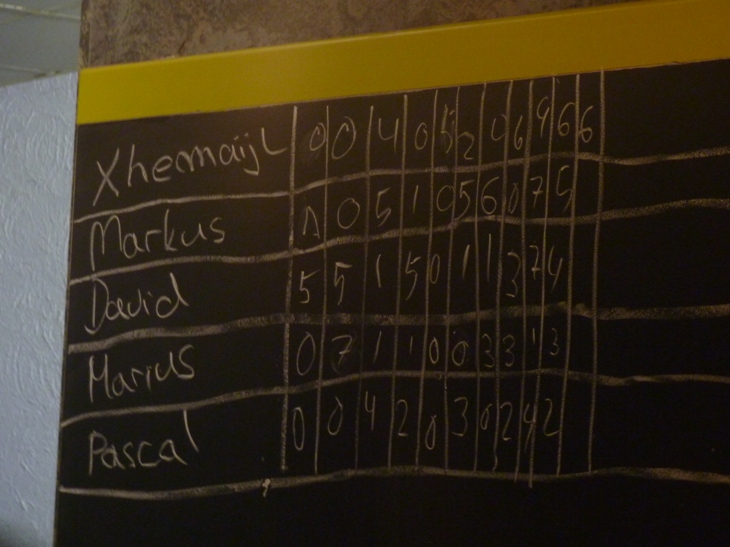 Xhemaijl 0 0 4 0 5 2 0 6 9 6 6
Markus 1 0 5 1 0 5 6 0 7 5
David 5 5 1 5 0 1 1 3 7 4
Marius 0 7 1 1 0 0 3 3 1 3
Pascal 0 0 4 2 0 3 0 2 4 2